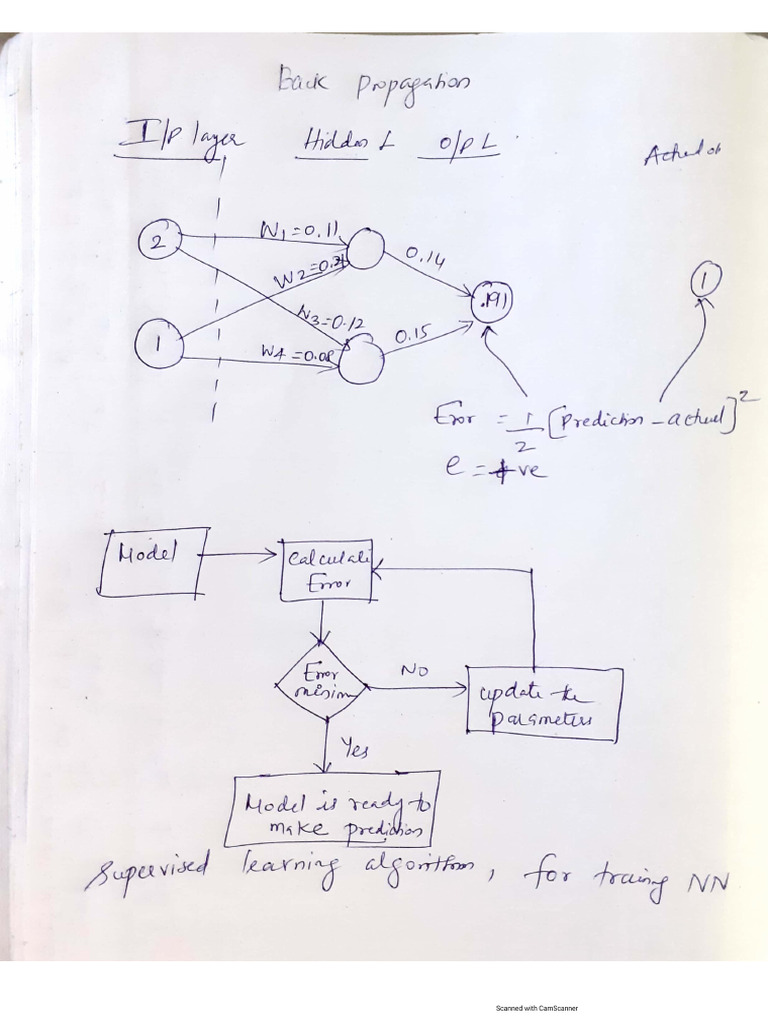 Back Propagation
I/P layer Hidden L O/P L
Actual
2
W1=0.11
W2=0.21
0.14
.191
1
1
W3=0.12
W4=0.08
0.15
Error = 1/2 [Prediction - actual]2
e = +ve
Model
Calculate
Error
Error
minimum
No
update the
parameters
Yes
Model is ready to
make prediction
Supervised learning algorithm, for training NN
Scanned with CamScanner